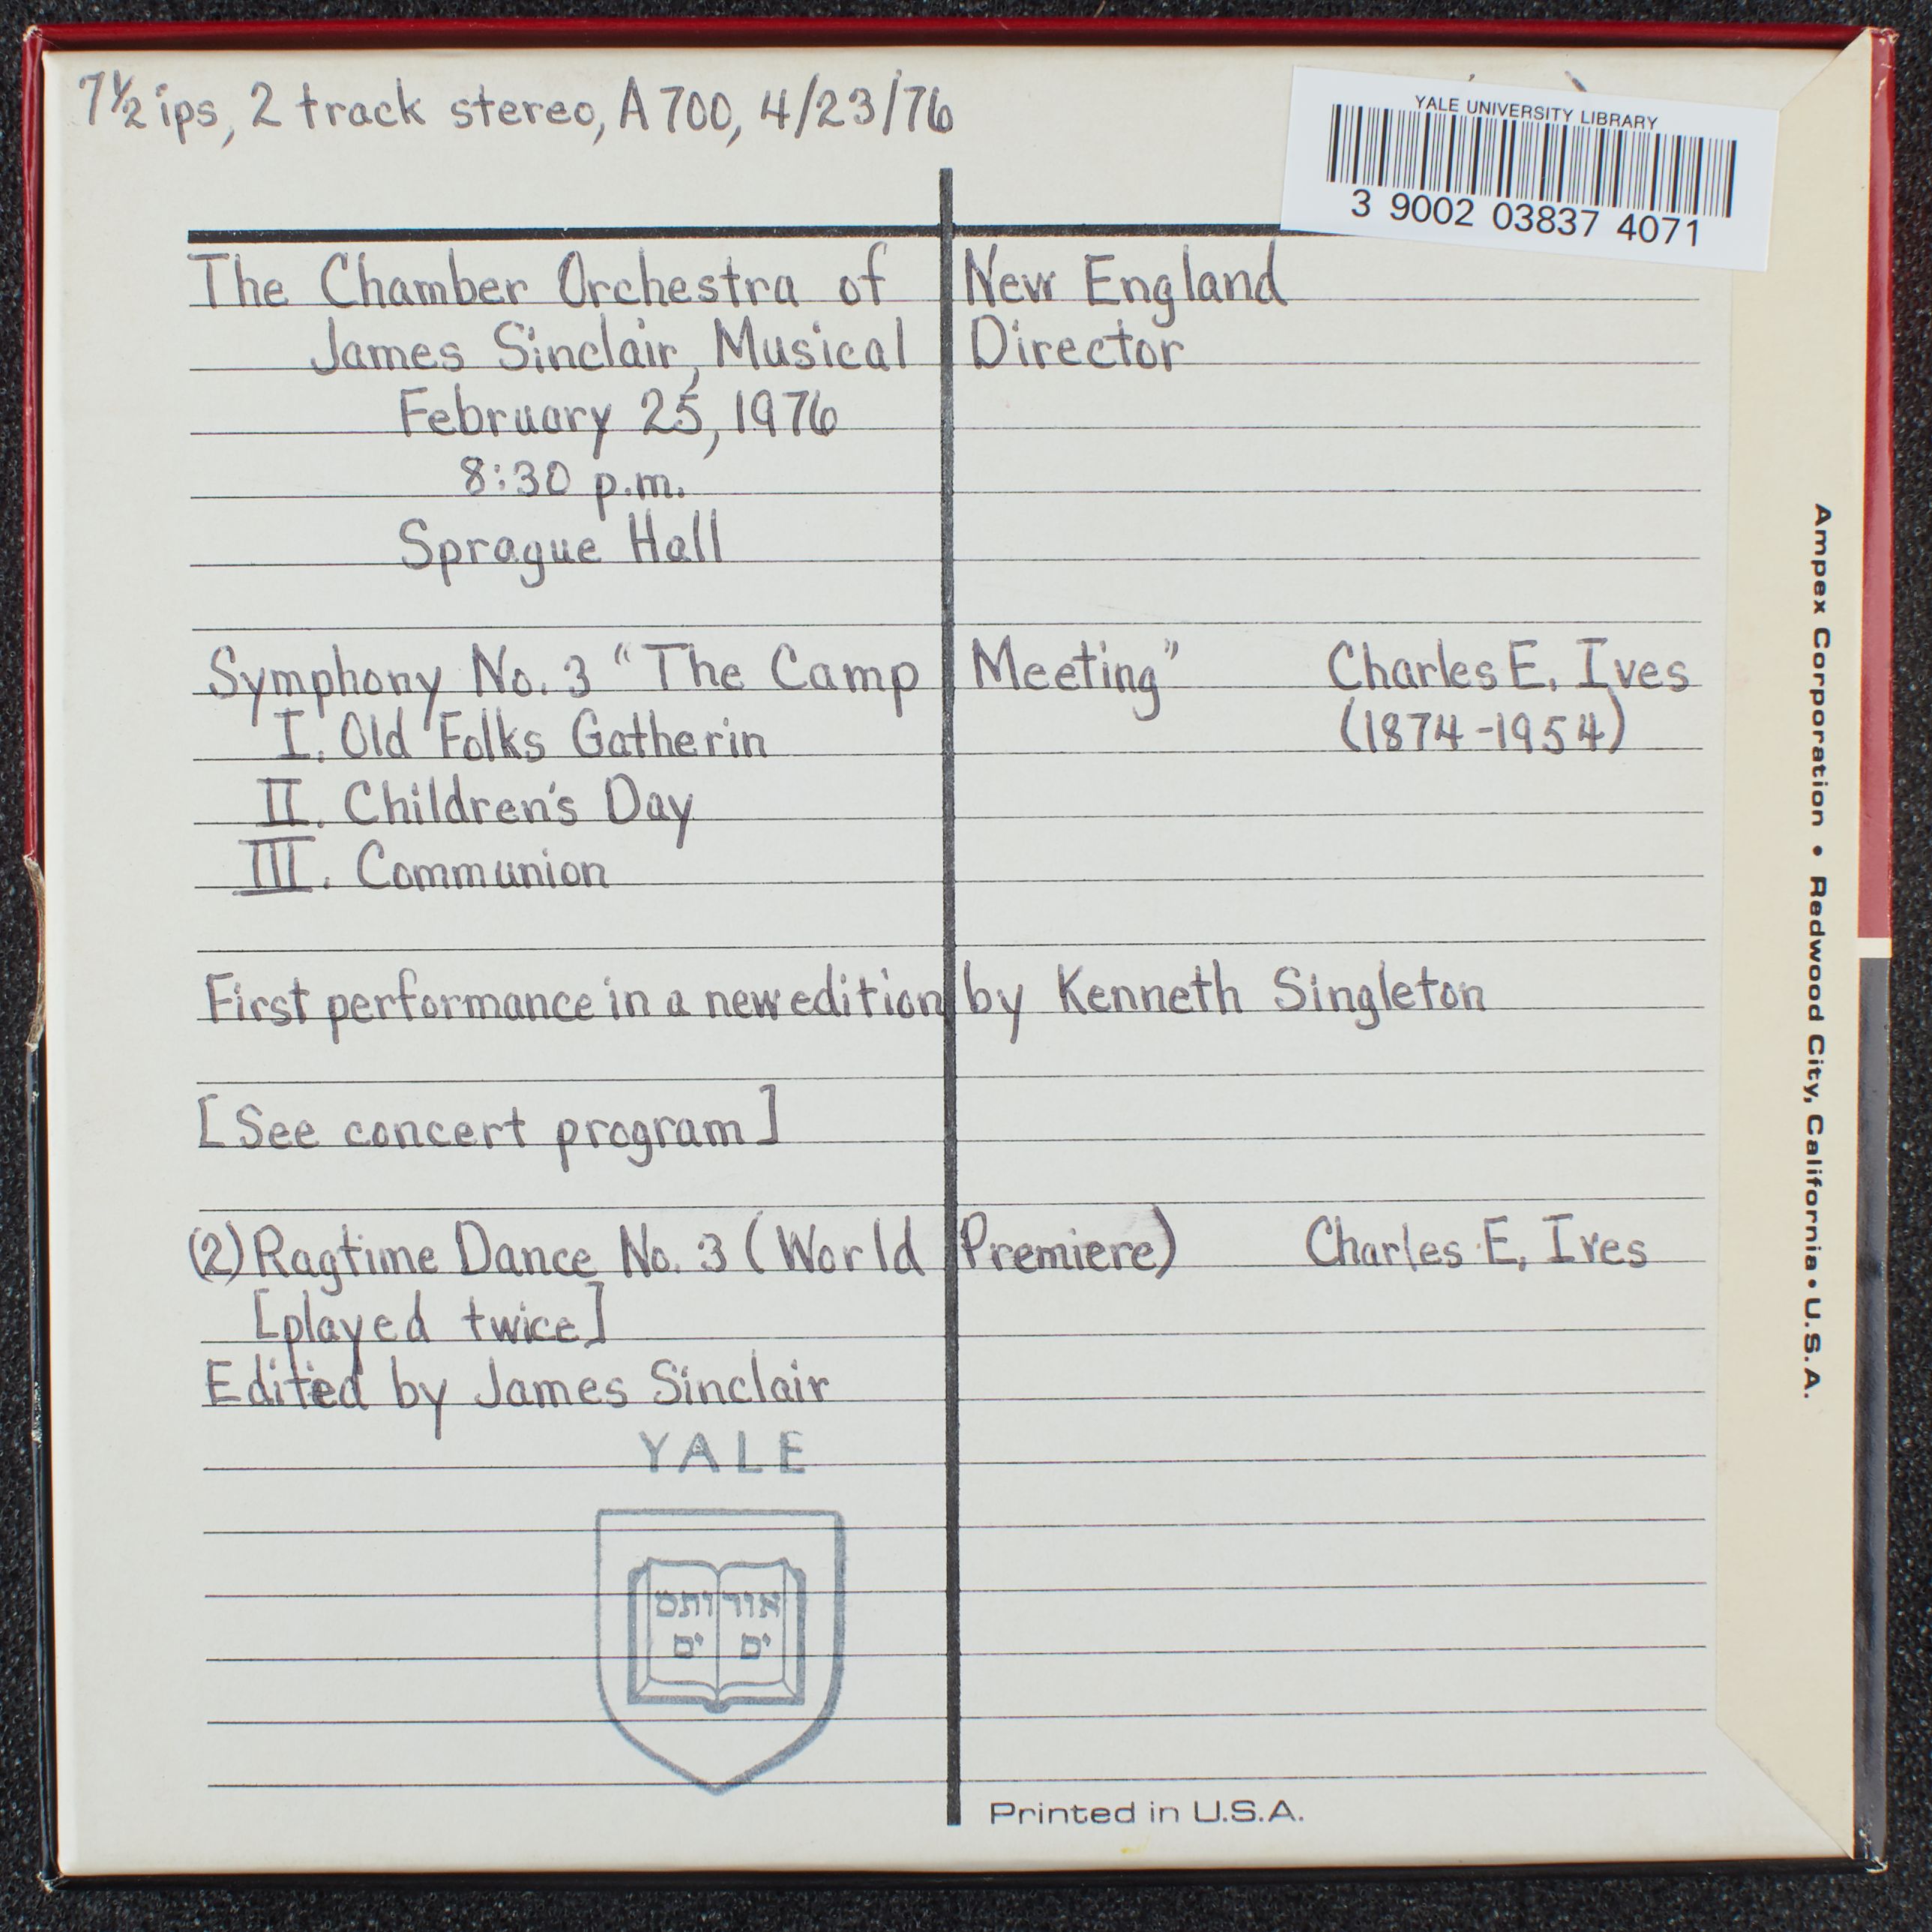 7½ ips, 2 track stereo, A 700, 4/23/76
YALE UNIVERSITY LIBRARY
3 9002 03837 4071
The Chamber Orchestra of New England
James Sinclair, Musical Director
February 25, 1976
8:30 p.m.
Sprague Hall
Symphony No. 3 "The Camp Meeting" Charles E. Ives
I. Old Folks Gatherin (1874-1954)
II. Children's Day
III. Communion
First performance in a new edition by Kenneth Singleton
[See concert program]
(2) Ragtime Dance No. 3 (World Premiere) Charles E. Ives
[played twice]
Edited by James Sinclair
YALE
אור ותמ
ים ים
Printed in U.S.A.
Ampex Corporation • Redwood City, California • U.S.A.